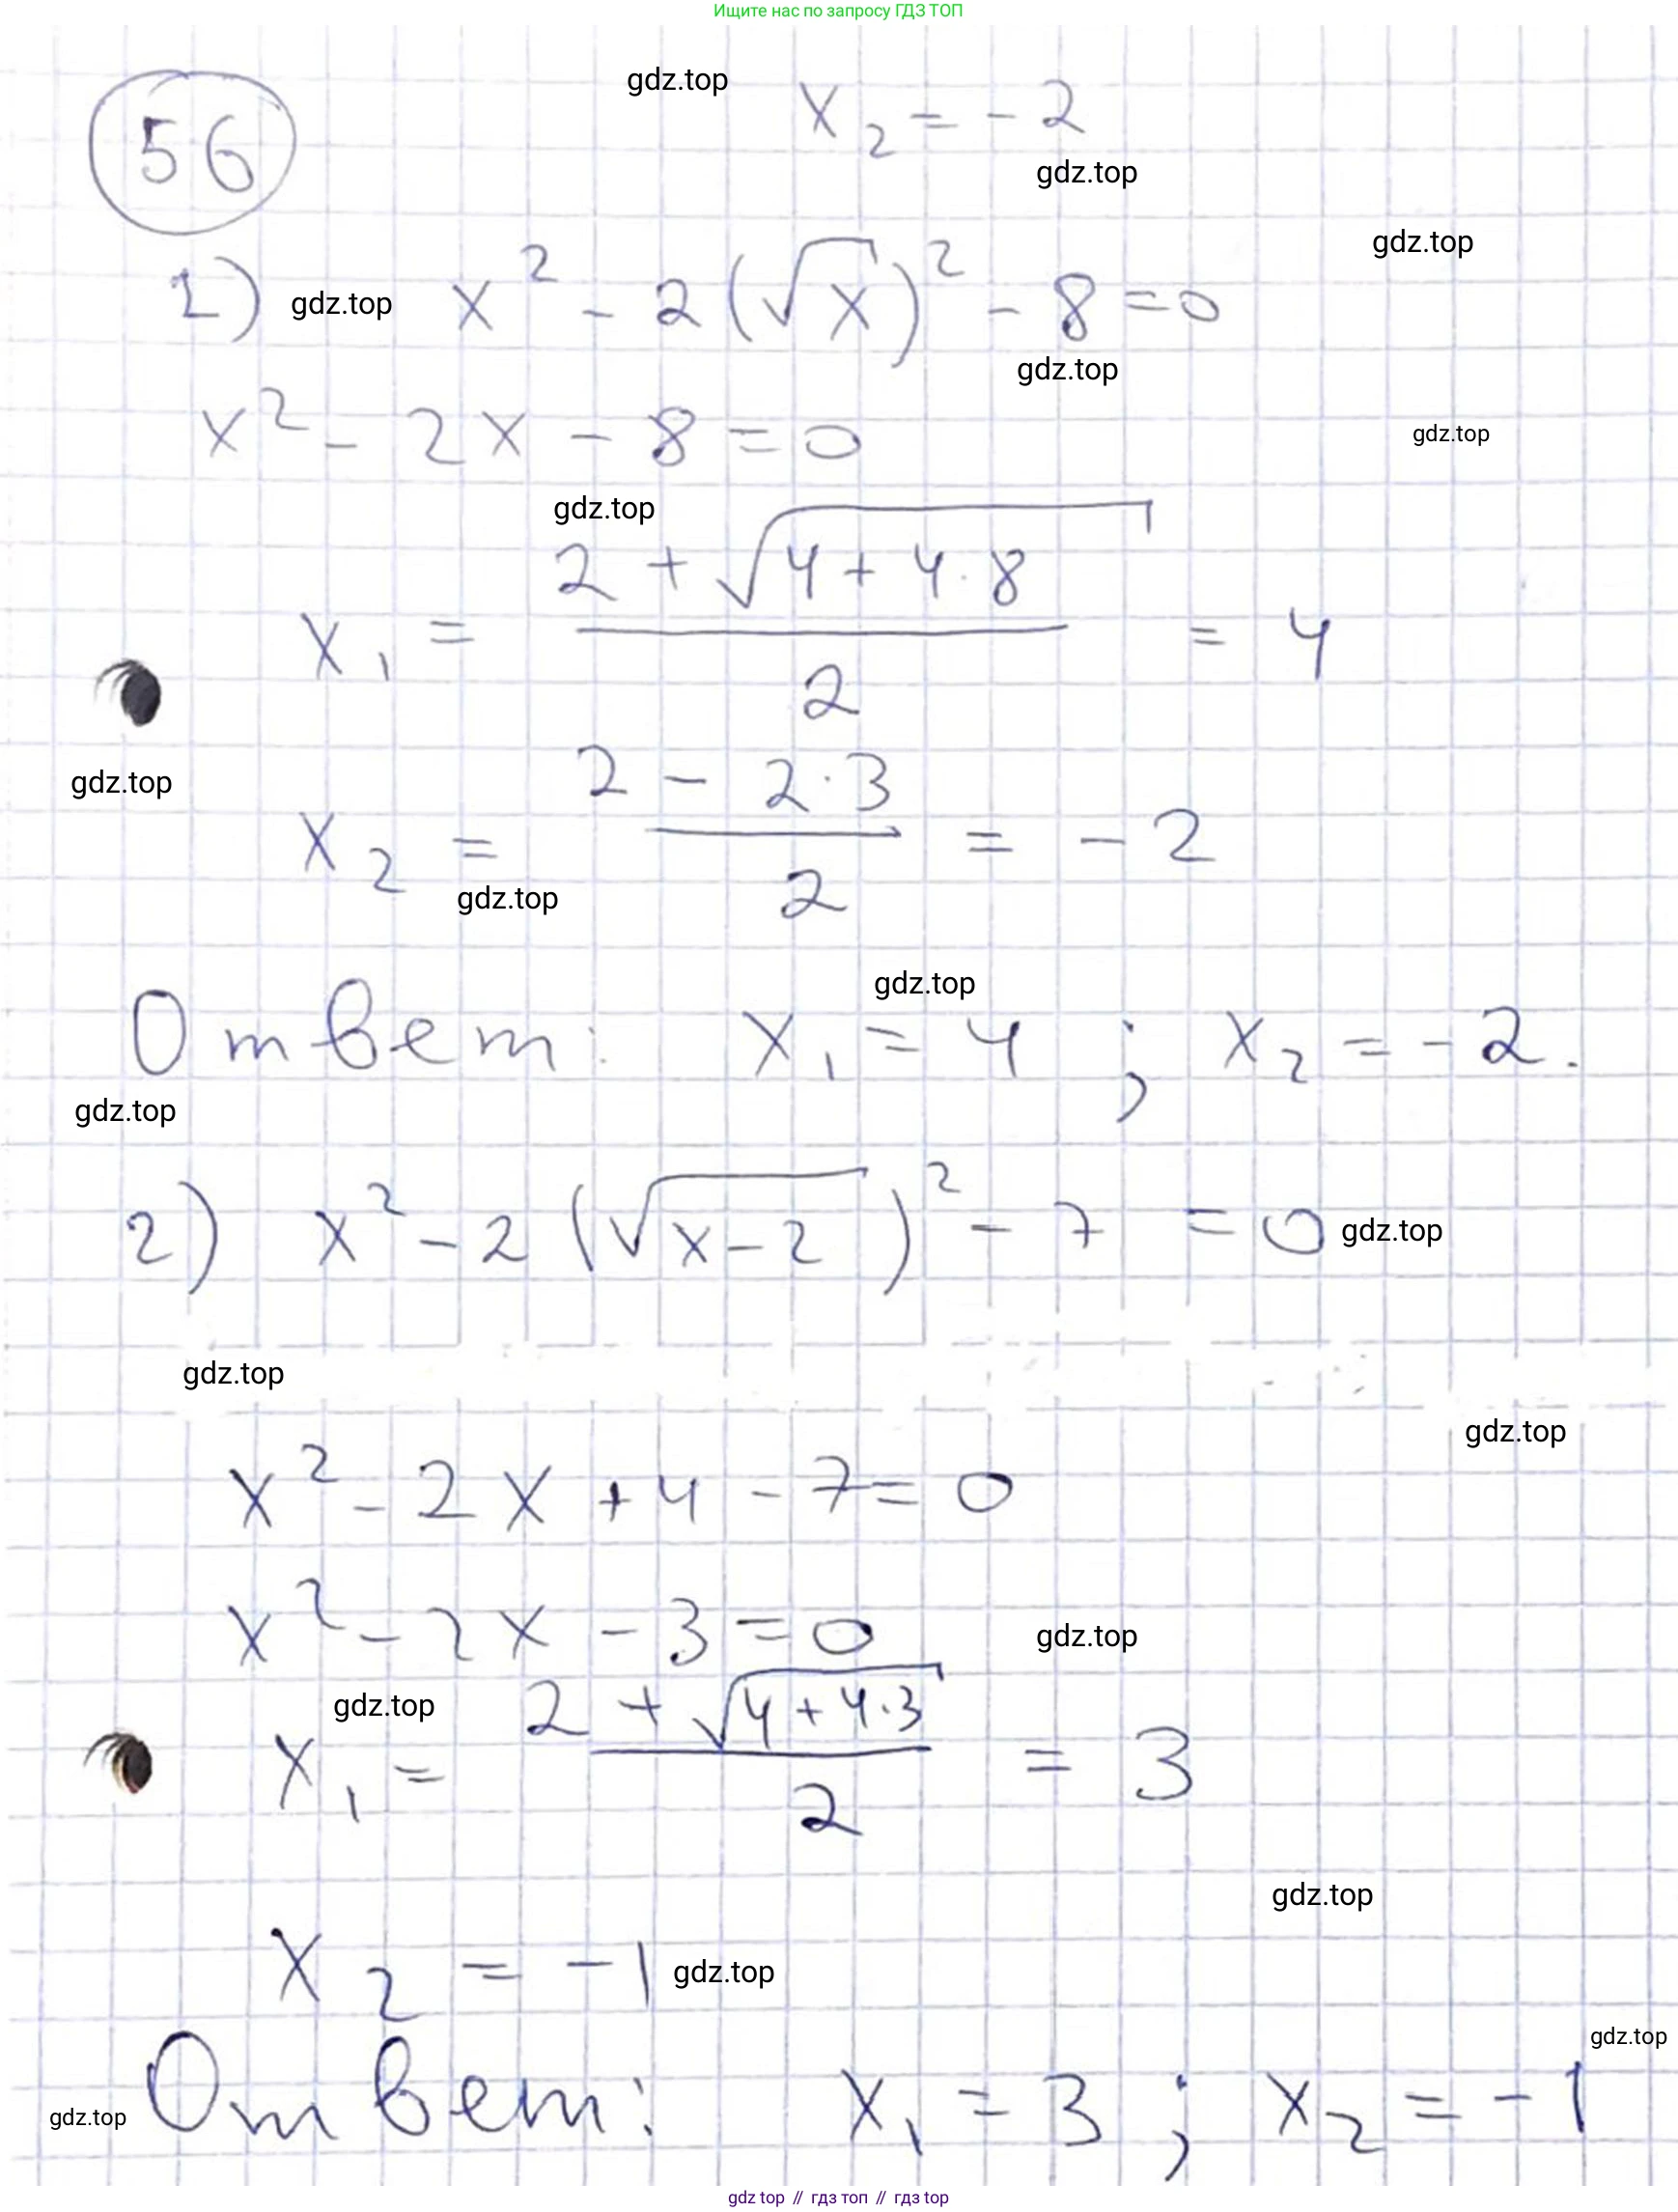 Ищите нас по запросу ГДЗ ТОП
gdz.top
x₂ = -2
56
gdz.top
gdz.top
1) gdz.top x² - 2(√x)² - 8 = 0
gdz.top
x² - 2x - 8 = 0
gdz.top
gdz.top
x₁ = (2 + √(4 + 4·8))/2 = 4
gdz.top
x₂ = (2 - 2·3)/2 = -2
gdz.top
gdz.top
Ответ: x₁ = 4 ; x₂ = -2.
gdz.top
2) x² - 2(√(x-2))² - 7 = 0 gdz.top
gdz.top
gdz.top
x² - 2x + 4 - 7 = 0
x² - 2x - 3 = 0
gdz.top
gdz.top
x₁ = (2 + √(4 + 4·3))/2 = 3
gdz.top
x₂ = -1 gdz.top
gdz.top
gdz.top Ответ: x₁ = 3 ; x₂ = -1
gdz top // гдз топ // гдз top